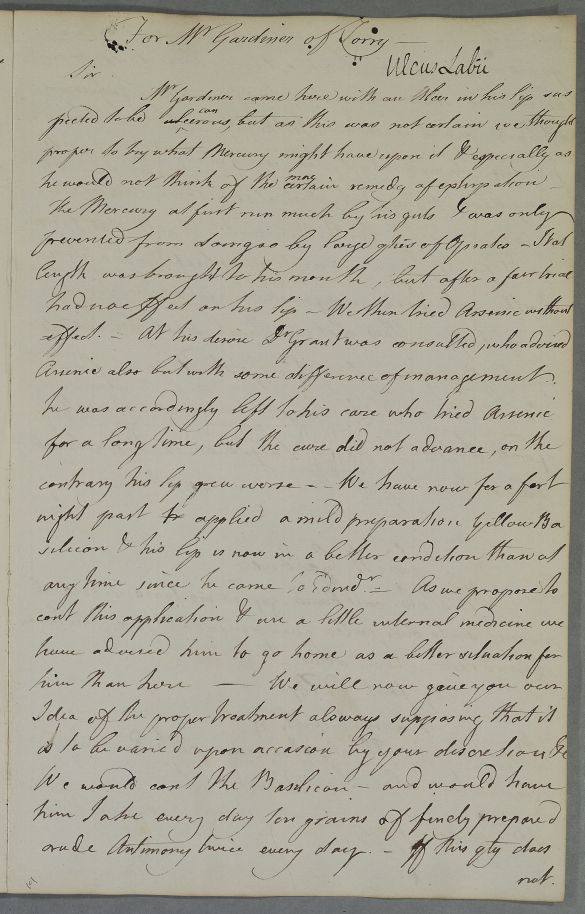 For Mr Gardiner of Corry —
Ulcus Labii
Sir
Mr Gardiner came here with an Ulcer in his lip sus
pected to be cancerous, but as this was not certain we, thought
proper to try what Mercury might have upon it & especially as
he would not think of the may certain remedy of extirpation —
the Mercury at first run much by his guts & was only
prevented from doing so by large doses of Opiates — It at
length was brought to his mouth, but after a fair trial
had no effect on his lip — We then tried Arsenic without
effect. — At his desire Dr Grant was consulted, who advised
Arsenic also but with some difference of management.
he was accordingly left to his care who tried Arsenic
for a long time, but the cure did not advance, on the
contrary his lip grew worse — We have now for a fort
night past applied a mild preparation Yellow Ba
silicon & his lip is now in a better condition than at
any time since he came to Edinr. — As we propose to
cont this application & use a little internal medicine we
have advised him to go home as a better situation for
him than here — We will now give you our
Idea of the proper treatment always supposing that it
is to be varied upon occasion by your discretion &c
We would cont the Basilicon — and would have
him take every day ten grains of finely prepared
crude Antimony twice every day. — If this qty does
not.